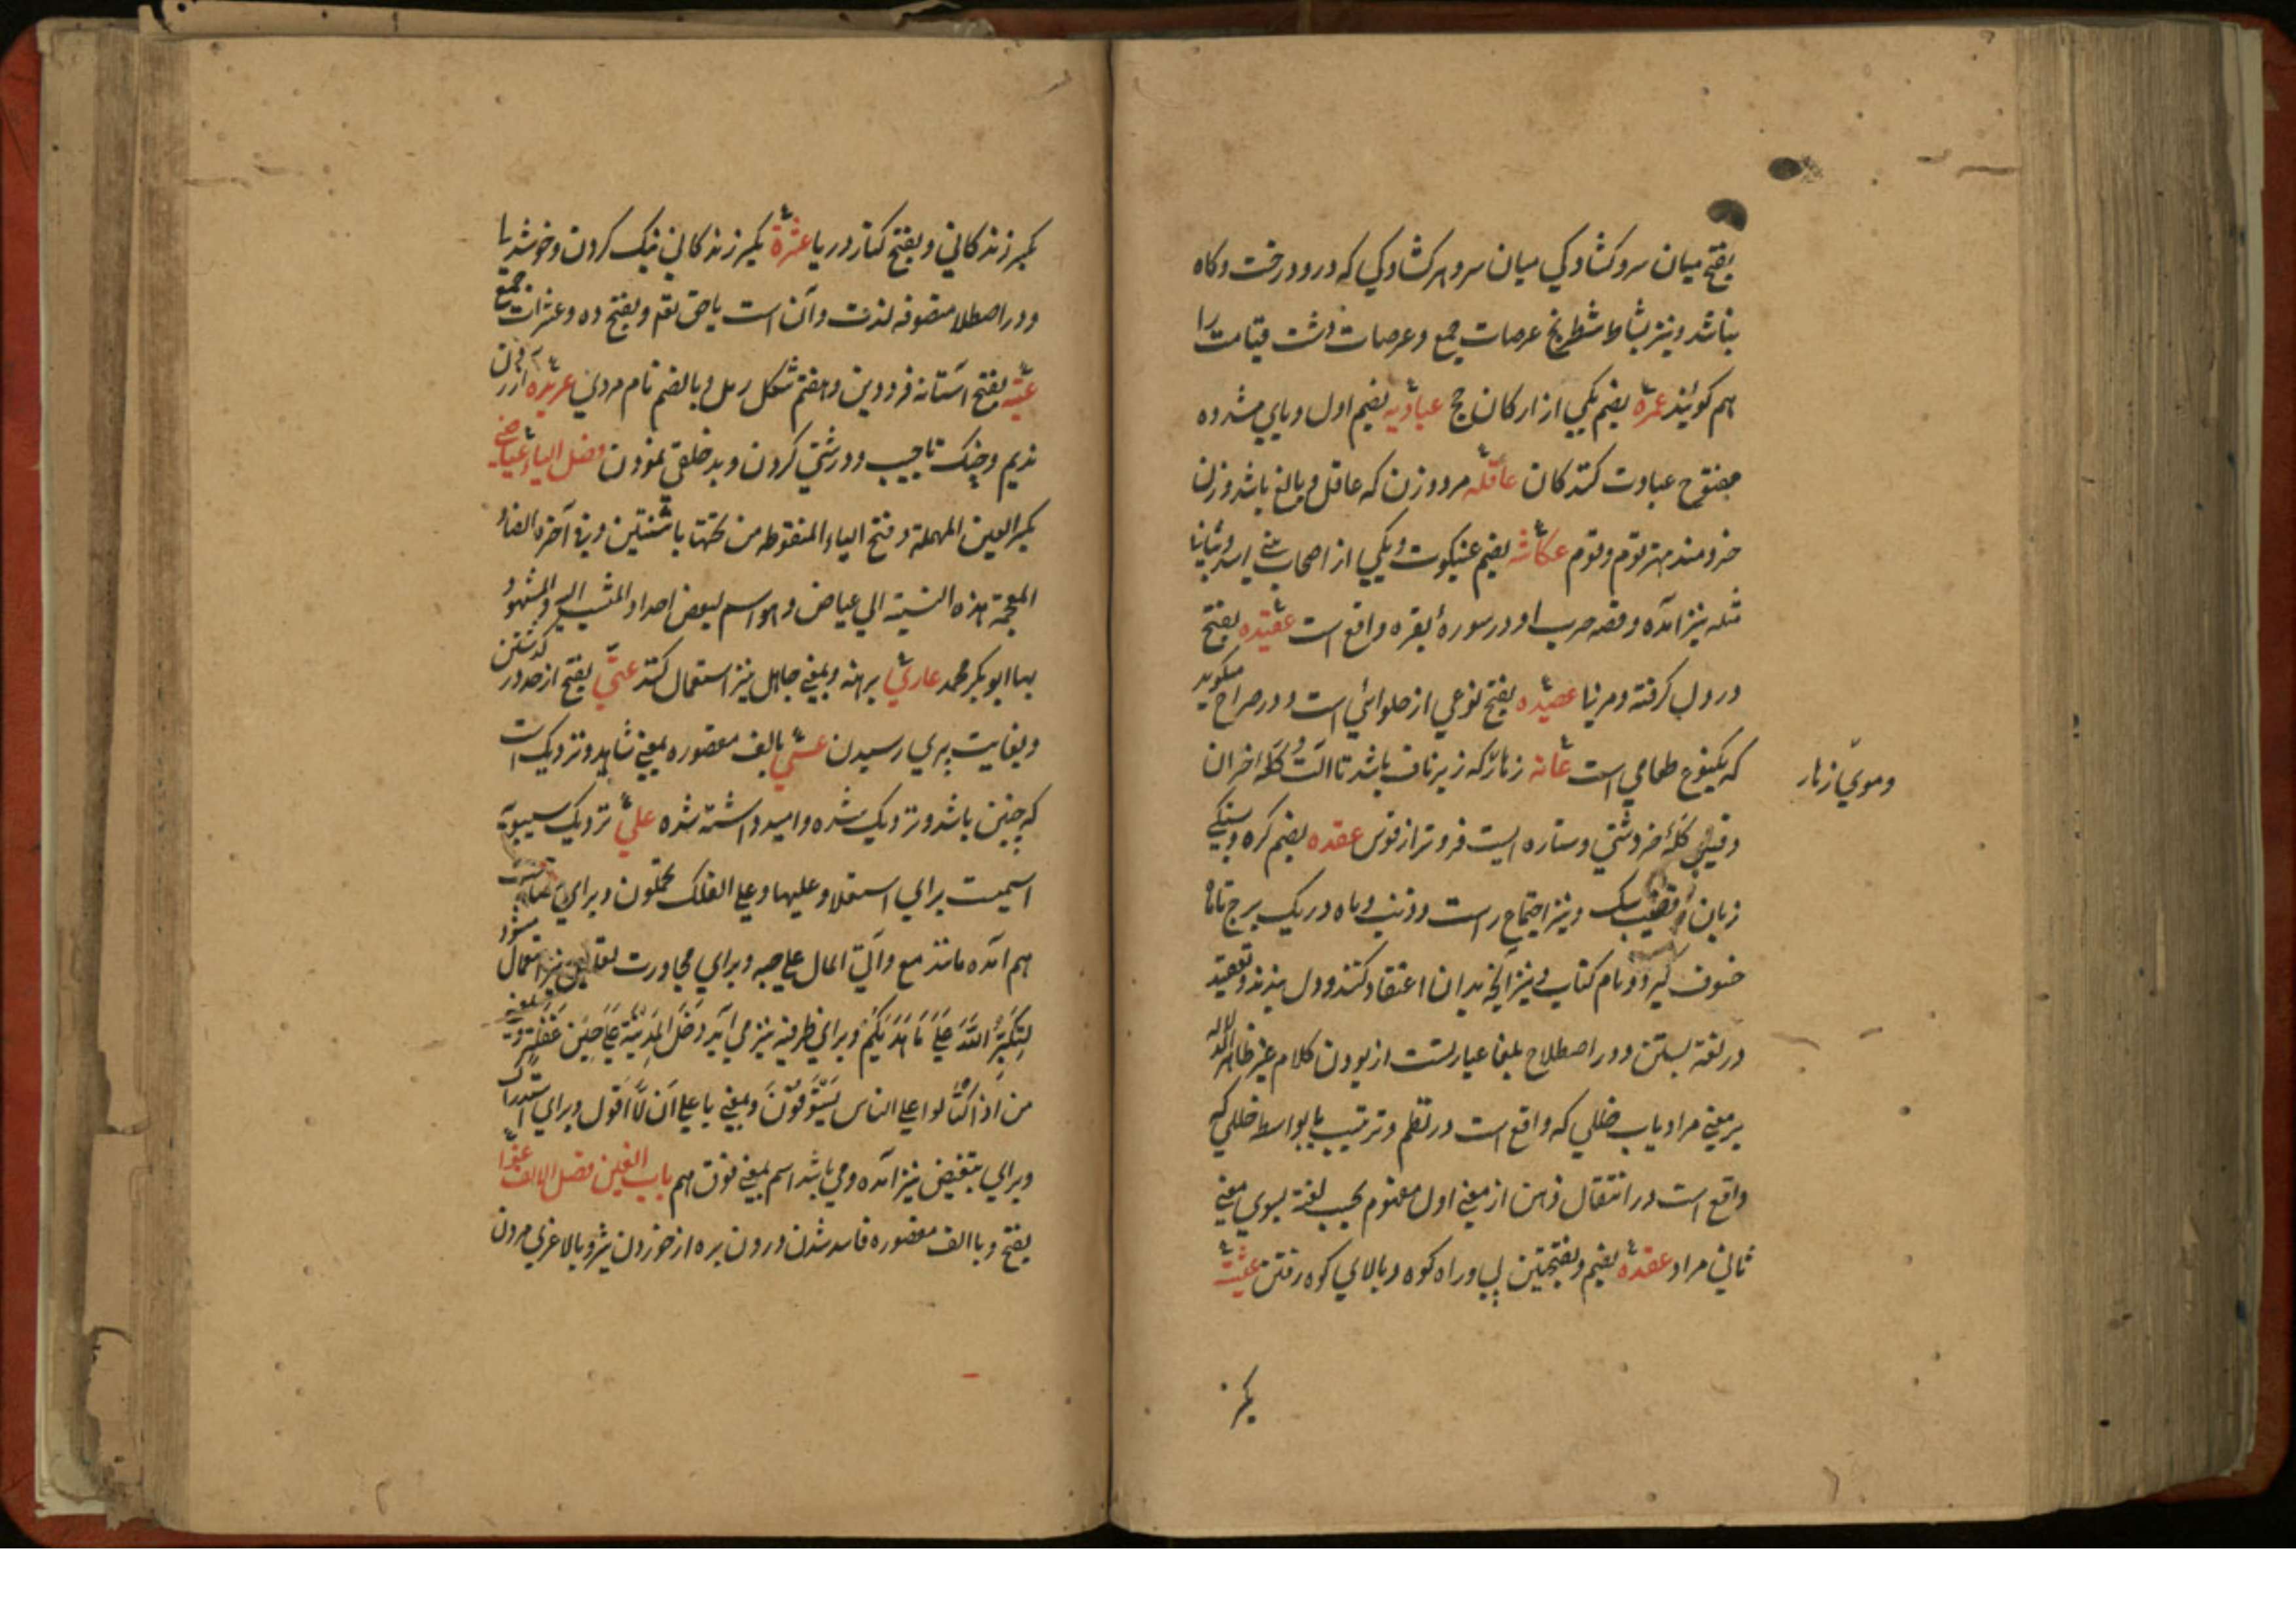 بفتح میان سرو کشادکي میان سرو هر کشادکي که درو درخت و کاه
نباشد و نیز بساط شطرنج عرصات جمع و عرصات دشت قیامت را
هم کویند عمره بضم یکي از ارکان حج عبادیه بضم اول و یاي مشدده
مفتوح عبادت کنندکان عاقله مرد و زن که عاقل و بالغ باشد و زن
خردمند مهتر قوم و قوم عکاشه بضم عنکبوت و یکي از اصحاب
نیز آمده و قصه او در سورهٔ بقره واقع است عقیده بفتح
در دل کرفته عصیده بفتح نوعي از حلوائي است و در صراح میکوید
که یکنوع طعامي است عانه زهار که زیر ناف باشد کله خران
وموي زهار
کله خر دشتي و ستاره ایست فروتر از قوس عقده بضم کره
زبان و نیز اجتماع راست و ذنب و ماه در یک برج تا ماه
خسوف کیرد و نام کتاب و نیز آنچه بدان اعتقاد کنند و دل بندند و تعقید
در لغة بستن و در اصطلاح بلغا عبارتست از بودن کلام غیر ظاهر الدلاله
بر معني مراد یا بخللي که واقع است در نظم و ترتیب یا بواسط خللي که
واقع است در انتقال ذهن از معني اول مفهوم بحسب لغة بسوي معني
ثاني مراد عقده بضم و بفتحتین و راه کوه و بالاي کوه رفتن عیشة
بکسر
بکسر زندکاني و بفتح کنار دریا عشرة بکسر زندکاني نیک کردن و
و در اصطلاح متصوفه لذت و آن است باحق تع و بفتح ده و عشرات جمع
عتبه بفتح آستانه فرودین و هفتم شکل رمل و بالضم نام مردي عربده
ندیم و جنک و درشتي کردن و بدخلقي نمودن فصل الیاء عیاضي
بکسر العین المهملة و فتح الیاء المنقوطه من تحتها باثنتین و في آخره الضاد
المعجمة هذه النسبة الي عیاض و هو اسم لبعض اجداد المنتسب الیه و المشهور
بها ابو بکر محمد عاري برهنه و بمعني جاهل نیز استعمال کنند عتي بفتح از حد در کذشتن
و بغایت پیري رسیدن عسي بالف مقصوره بمعني شاید و نزدیک است
که چنین باشد و نزدیک شده و امید داشته شده علي نزدیک سیبویه
اسمیست براي استعلا و علیها و علي الفلک تحملون و براي
هم آمده مانند مع وآتي المال علي حبه و براي مجاورت نیز استعمال شود
لِتُکَبِّرُ اللّٰهَ عَلیٰ مَا هَدٰیکُم و براي ظرفیه نیز مي آید دَخَلَ المَدِینَةَ عَلیٰ حِینِ غَفلَةٍ
من اذا اکتالوا علي الناس یستوفون و بمعني با علي ان لا اقول و براي استدراک
و براي تبعیض نیز آمده و مي باشد اسم بمعني فوق هم باب الغین فصل الالف
بفتح و با الف مقصوره فاسد شدن درون بره از خوردن شیر و